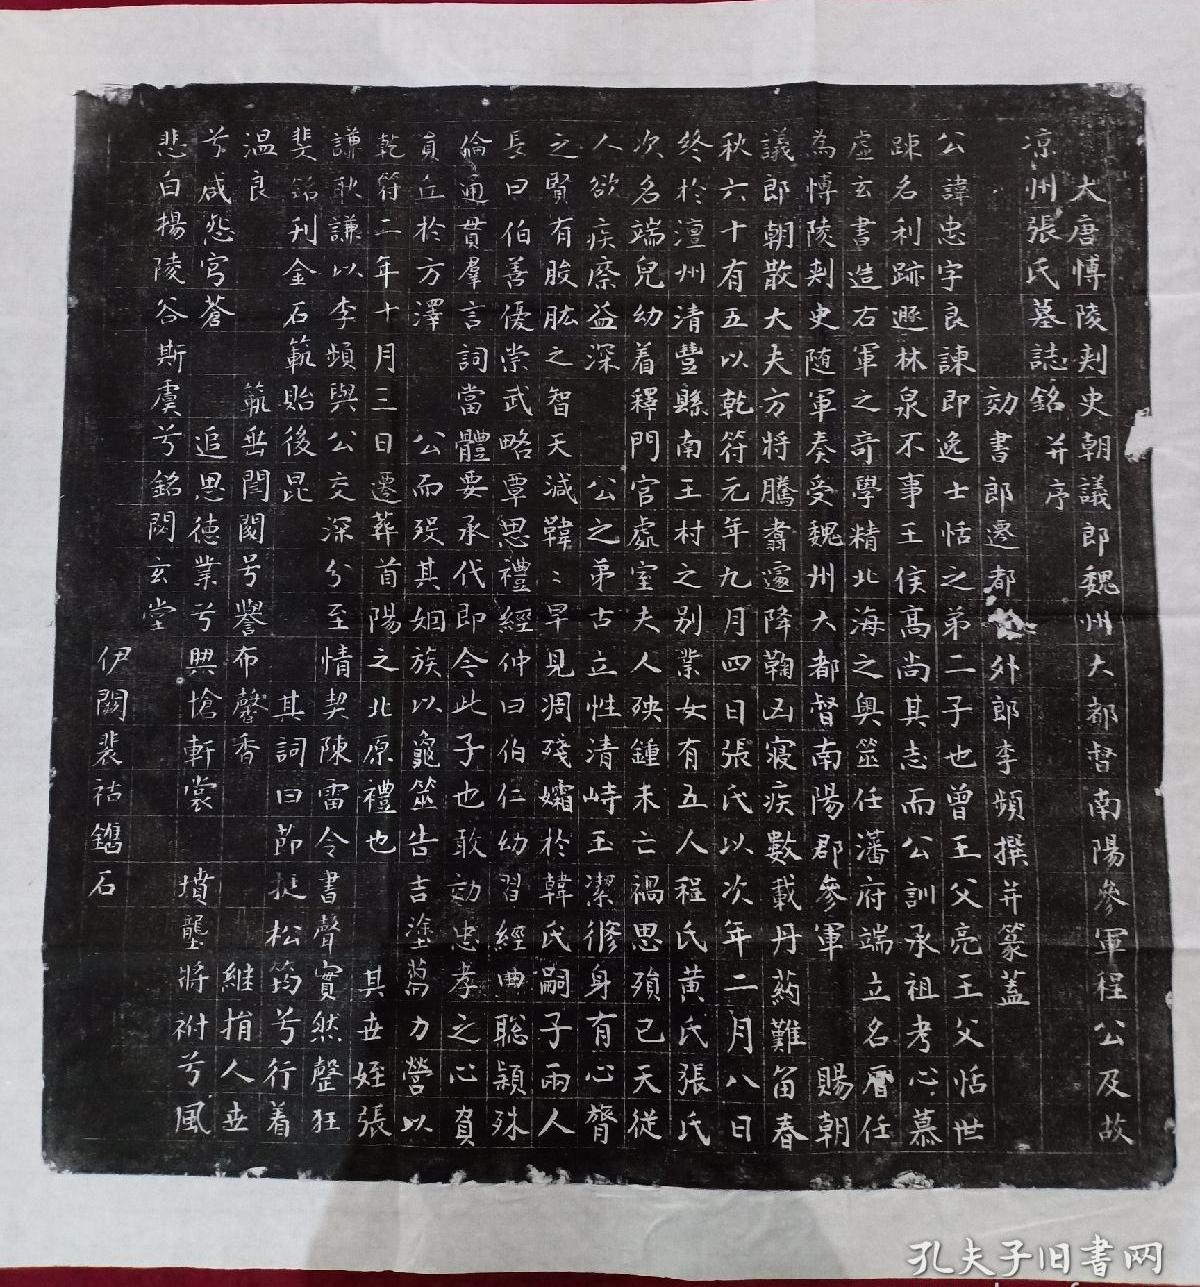 大唐博陵刾史朝議郎魏州大都督南陽參軍程公及故
凉州張氏墓誌銘并序
効書郎遷都外郎李頻撰并篆蓋
公諱忠字良諫即逸士恬之弟二子也曾王父亮王父恬世
踈名利跡遯林泉不事王侯高尚其志而公訓承祖考心慕
虛玄書造右軍之竒學精北海之奥筮任藩府端立名曆任
為博陵刾史随軍奏受魏州大都督南陽郡參軍　賜朝
議郎朝散大夫方將騰翥邅降鞠凶寢疾數載丹葯難畱春
秋六十有五以乾符元年九月四日張氏以次年二月八日
終於澶州清豐縣南王村之别業女有五人程氏黄氏張氏
次名端兒幼着釋門官處室夫人殃鍾未亡禍思殞已天從
人欲疾瘵益深　公之弟古立性清峙玉潔修身有心膂
之賢有股肱之智天減韡〻早見凋殘孀於韓氏嗣子兩人
長曰伯善優崇武略覃思禮經仲曰伯仁幼習經典聡穎殊
倫通貫羣言詞當體要承代即令此子也敢効忠孝之心賁
貟丘於方澤　公而殁其姻族以龜筮告吉塗蒭力營以
乾符二年十月三日遷葬首陽之北原禮也　其世姪張
謙耿謙以李頻與公交深分至情契陳雷令書聲實然罄狂
斐銘刋金石範貽後昆　其詞曰節挺松筠兮行着
温良　範垂閨閫兮譽布馨香　維捐人世
兮咸怨穹蒼　追思德業兮輿愴軒裳　墳壟將祔兮風
悲白楊陵谷斯虞兮銘閟玄堂
伊闕裴祜鐫石
孔夫子旧书网